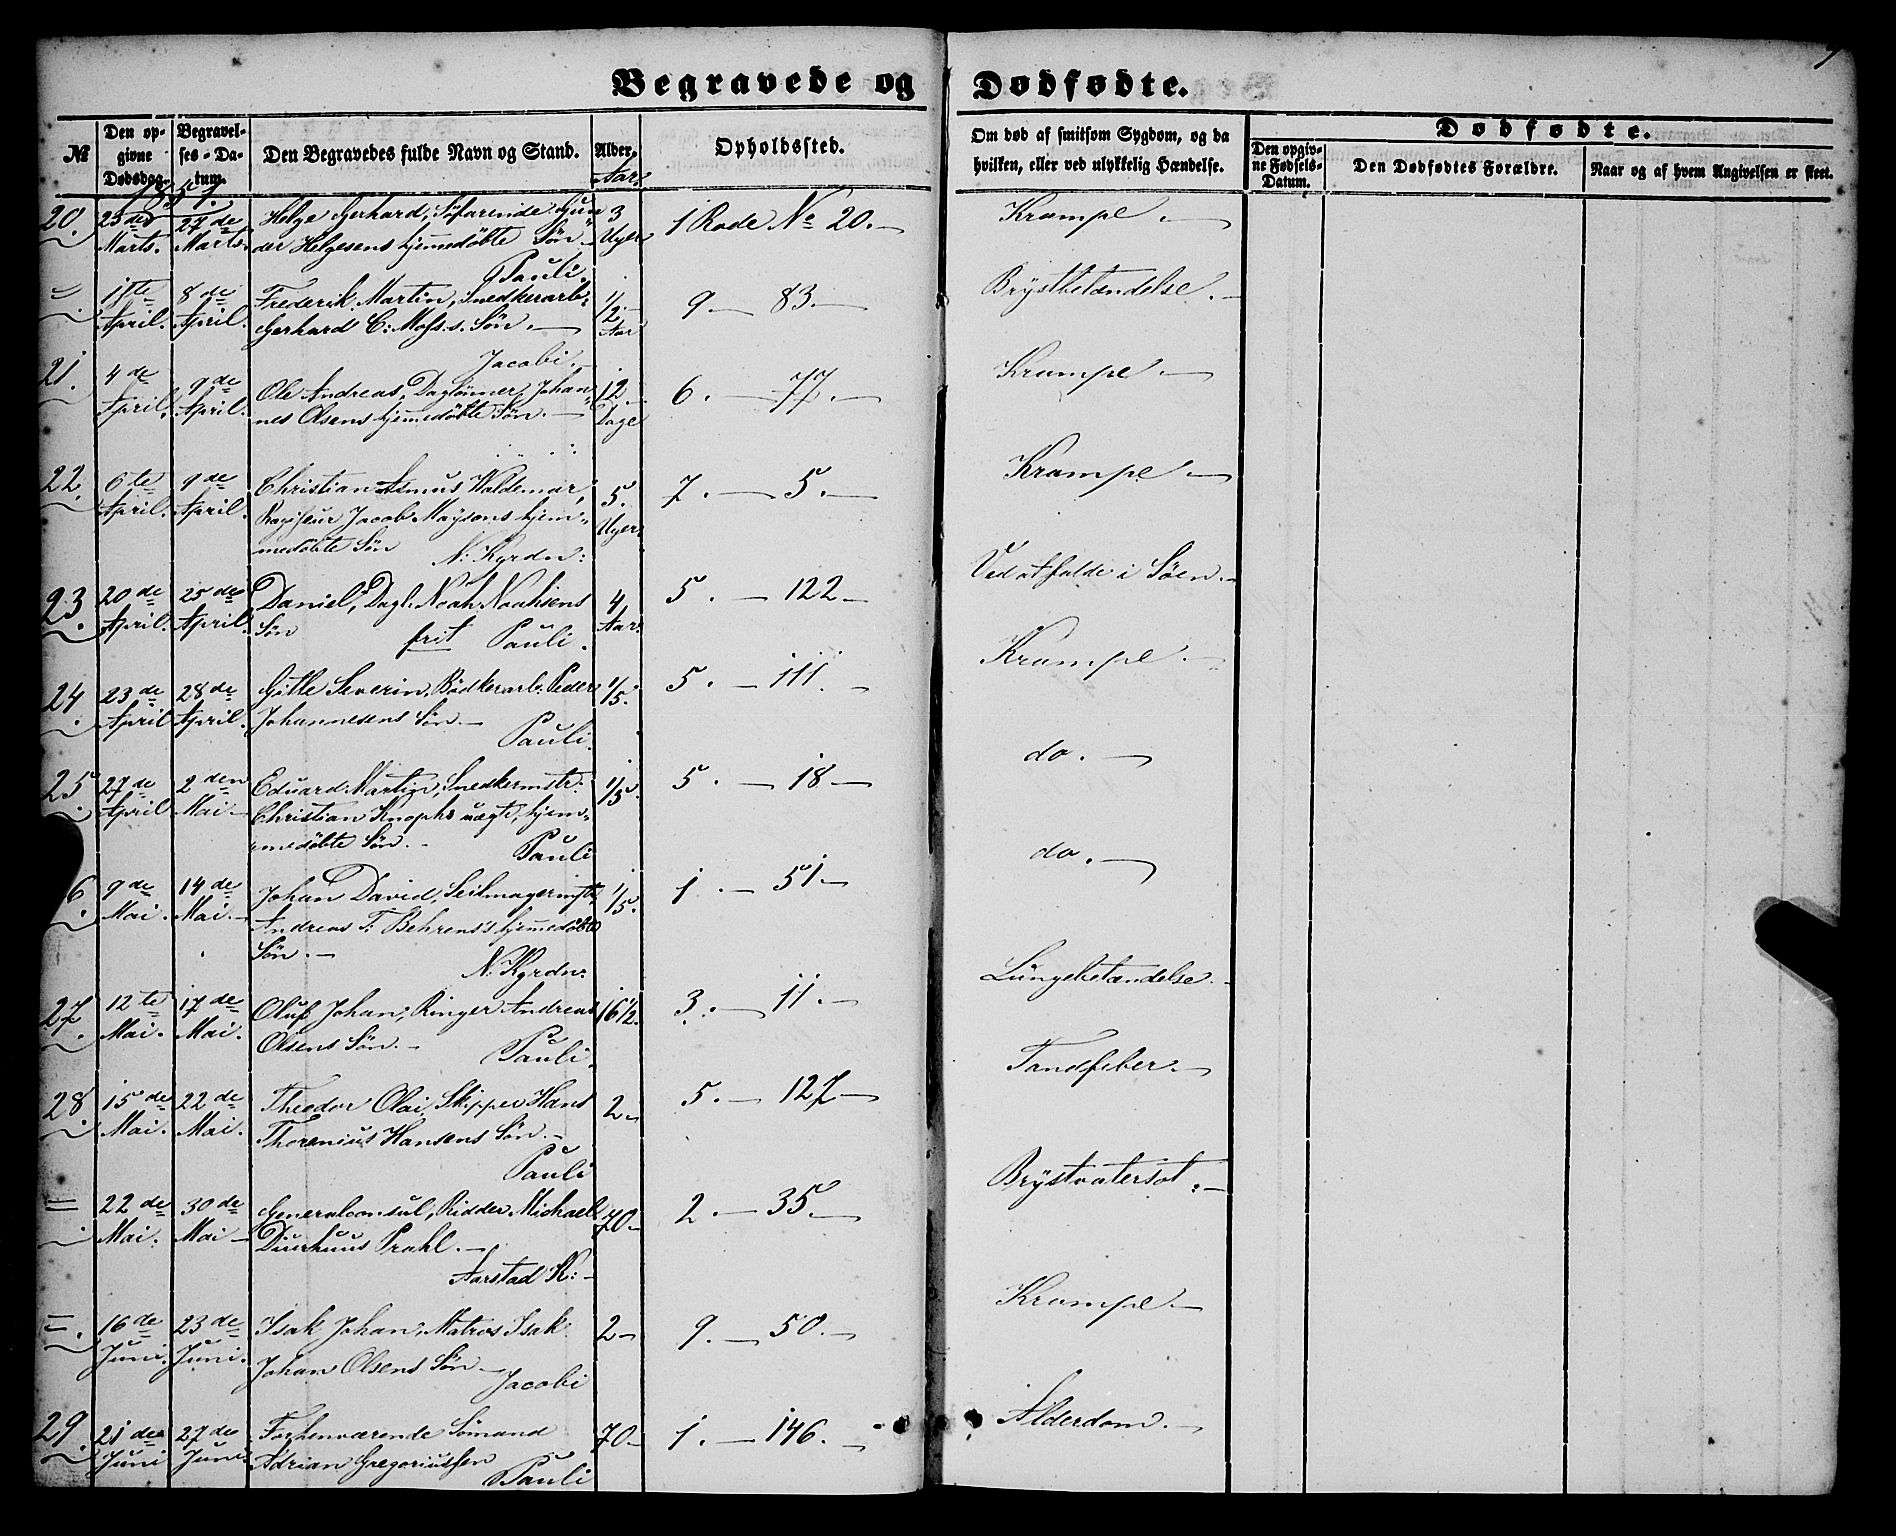 7
Begravede og Dødfødte.
№
Den opgivne Dødsdag.
Begravelses-Datum.
Den Begravedes fulde Navn og Stand.
Alder. Aar.
Opholdssted.
Om død af smitsom Sygdom, og da hvilken, eller ved ulykkelig Hændelse.
Dødfødte.
Den opgivne Fødsels-Datum.
Den Dødfødtes Forældre.
Naar og af hvem Angivelsen er skeet.
1857.
20. 23de 27de Helge Gerhard, Søfarende Gun- 3 1 Rode No 20. Krampe
Marts. Marts. der Helgesens hjemmedøbte Søn Uger
Pauli.
= 1ste 8de Frederik Martin, Snedkerarb: 1/2 9 83. Brystbetændelse.
April. April. Gerhard C: Moss.s Søn. Aar
Jacobi.
21. 4de 9de Ole Andreas, Daglønner Johan- 12 6. 77. Krampe
April. April. nes Olsens hjemmedøbte Søn. Dage
22. 6te 9de Christian Asmus Waldemar, 5. 7. 5. Krampe
April. April. Jacob Maysons hjem- Uger
medøbte Søn N. Kgrdn:
23. 20de 25de Daniel, Dagl. Noah Noahsens 4 5. 122 Ved at falde i Søen.
April. April. Søn frit Pauli. Aar.
24. 23de 28de Gitle Severin, Bødkerarb. Peder 1/5. 5. 111. Krampe.
April April. Johannesens Søn. Pauli.
25. 27de 2den Eduard Martin, Snedkermstr. 1/5. 5. 18 do.
April Mai Christian Knophs uægte, hjem-
medøbte Søn. Pauli
6. 9de 14de Johan David, Seilmagermstr. 1/5. 1. 51 do.
Mai. Mai. Andreas T. Behrens's hjemmedøbte
Søn. N. Kgrdn:
27. 12te 17de Oluf Johan, Ringer Andreas 16 1/2. 3. 11. Lungebetændelse.
Mai. Mai. Olsens Søn. Pauli.
28. 15de 22de Theodor Olai, Skipper Hans 2 5. 127 Tandfeber.
Mai. Mai. Thorenius Hansens Søn.
Pauli
= 22de 30de Generalconsul, Ridder Michael 70 2. 35. Brystvatersot.
Mai. Mai Krahl.
Aarstad K:
=. 16de 23de Isak Johan, Matros Isak 2 9. 50. Krampe.
Juni. Juni. Johan Olsens Søn
Jacobi
29. 21de 27de Forhenværende Sømand 70 1. 146. Alderdom.
Juni Juni Adrian Gregoriussen
Pauli